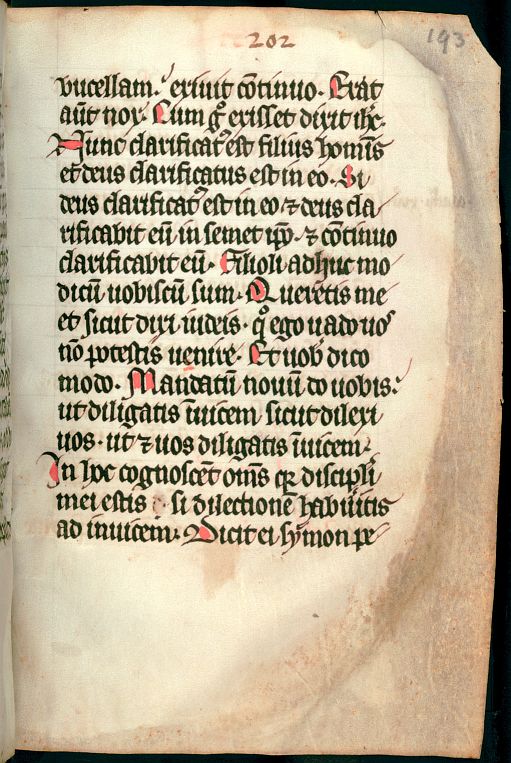 202
193
bucellam. exiuit cōtinuo. Erat
aūt nox. Cum gͦ exisset dixit ihc.
Nunc clarificatꝰ est filius hominis
et deus clarificatus est in eo. Si
deus clarificatꝰ est in eo ⁊ deus cla
rificabit eū in semet ip̄o. ⁊ cōtinuo
clarificabit eū. Filioli adhuc mo
dicū uobiscū sum. Queretis me
et sicut dixi iudeis. qͦ ego uado uos
nō potestis uenire. Et uob̄ dico
modo. Mandatū nouū do uobis.
ut diligatis īuicem sicut dilexi
uos. ut ⁊ uos diligatis īuicem.
In hoc cognoscēt om̄s qꝛ discipli
mei estis si dilectionē habūitis
ad inuicem. Dicit ei symon pe